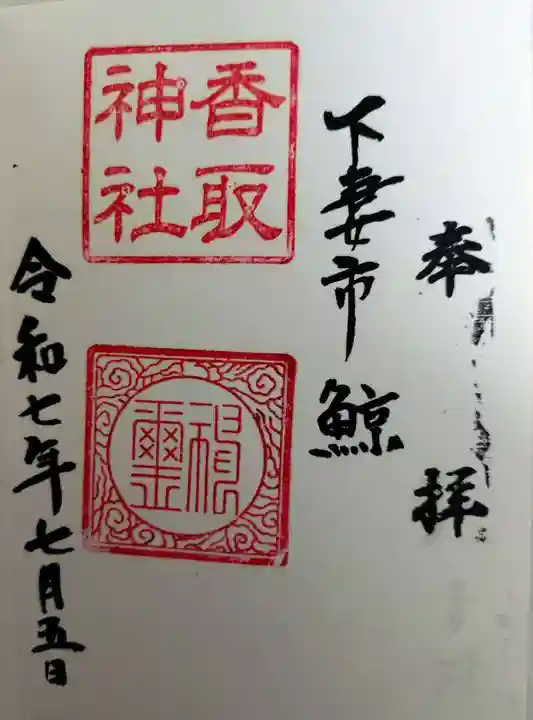 奉拝
下妻市鯨
香取
神社
神璽
令和七年七月五日